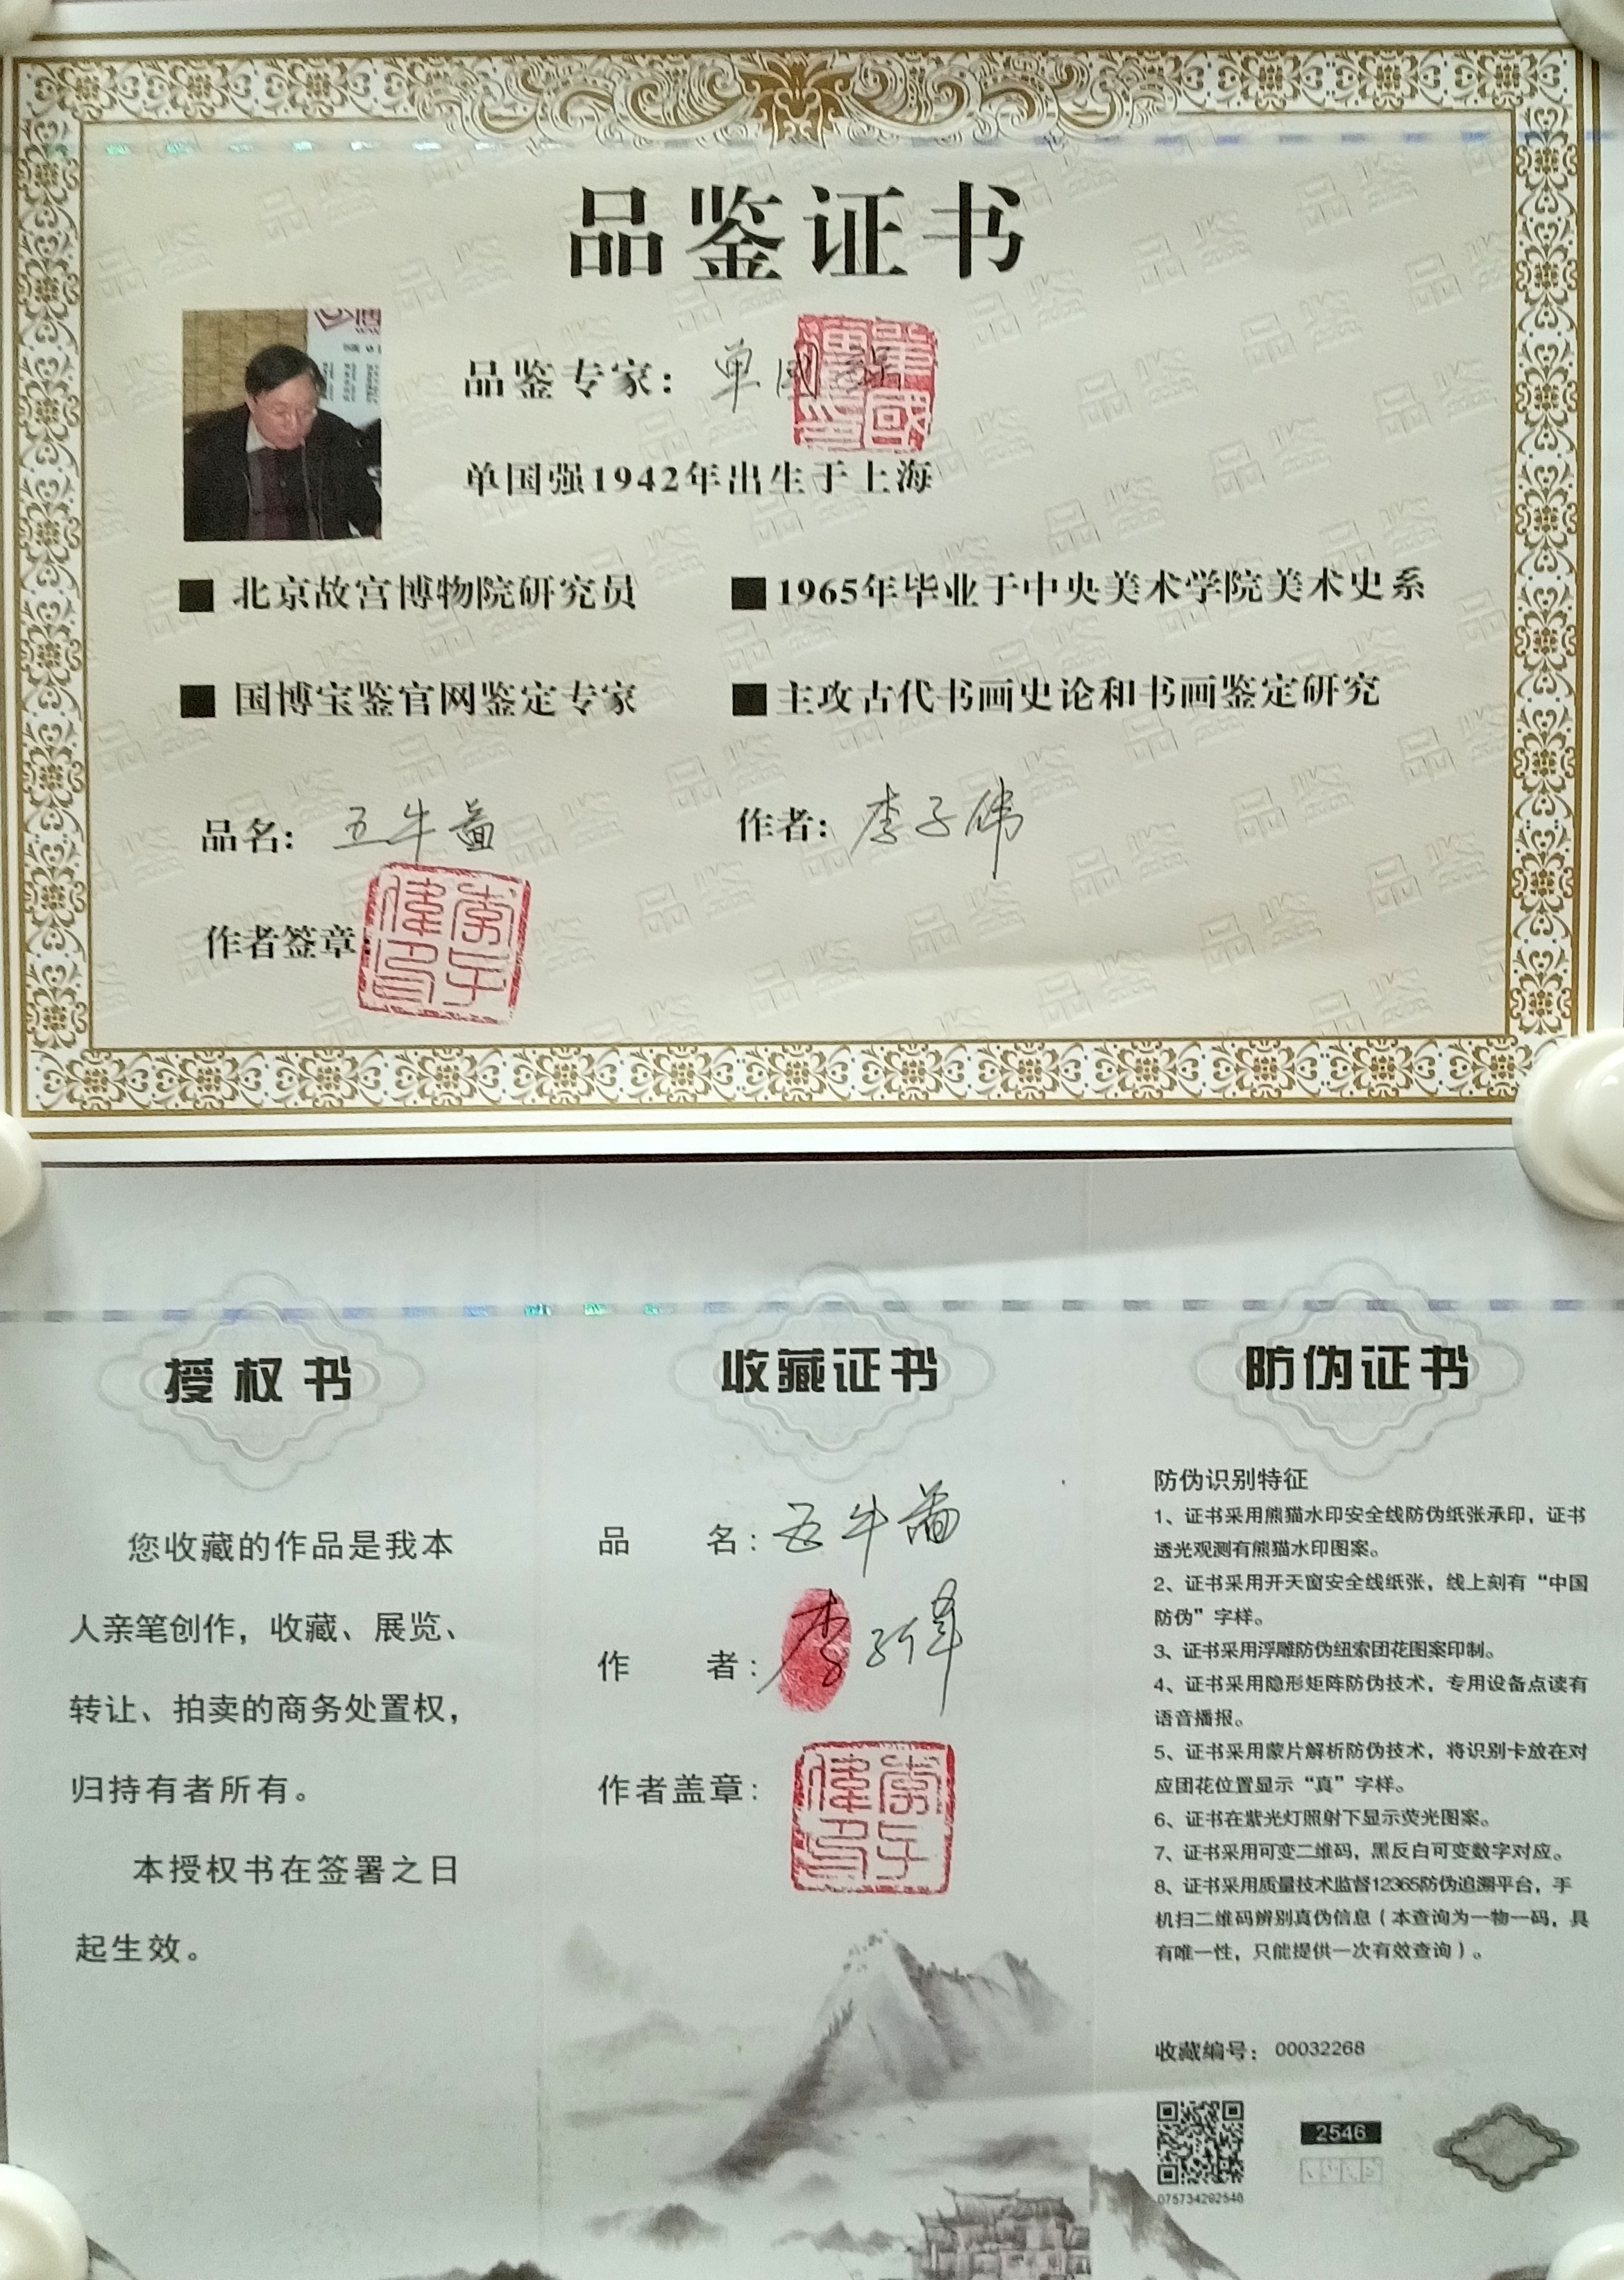 品鉴证书
品鉴专家：单国强
单国强1942年出生于上海
■ 北京故宫博物院研究员
■ 1965年毕业于中央美术学院美术史系
■ 国博宝鉴官网鉴定专家
■ 主攻古代书画史论和书画鉴定研究
品名：五牛图
作者：李子伟
作者签章：
李子偉印
授权书
您收藏的作品是我本
人亲笔创作，收藏、展览、
转让、拍卖的商务处置权，
归持有者所有。
本授权书在签署之日
起生效。
收藏证书
品 名：五牛图
作 者：李子伟
作者盖章：
李子偉印
防伪证书
防伪识别特征
1、证书采用熊猫水印安全线防伪纸张承印，证书
透光观测有熊猫水印图案。
2、证书采用开天窗安全线纸张，线上刻有“中国
防伪”字样。
3、证书采用浮雕防伪纽索团花图案印制。
4、证书采用隐形矩阵防伪技术，专用设备点读有
语音播报。
5、证书采用蒙片解析防伪技术，将识别卡放在对
应团花位置显示“真”字样。
6、证书在紫光灯照射下显示荧光图案。
7、证书采用可变二维码，黑反白可变数字对应。
8、证书采用质量技术监督12365防伪追溯平台，手
机扫二维码辨别真伪信息（本查询为一物一码，具
有唯一性，只能提供一次有效查询）。
收藏编号：00032268
2546
075734292546